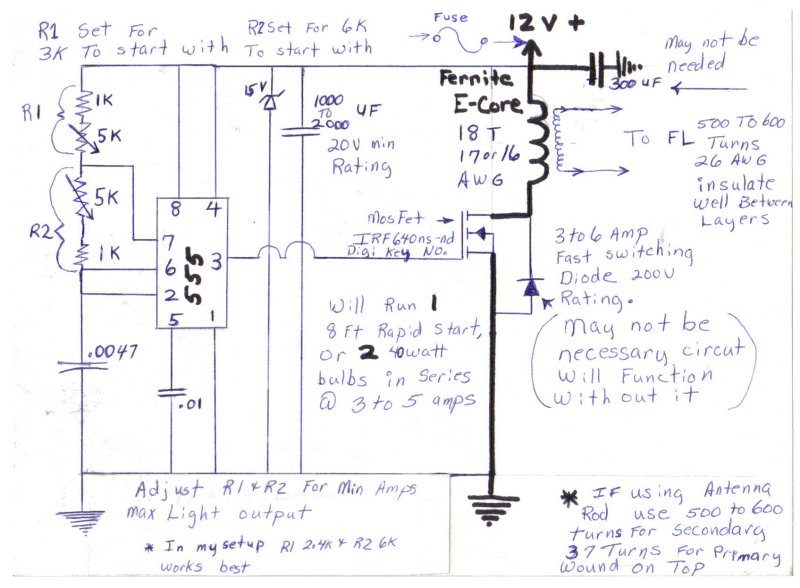 R1 Set For
3K To start with
R2 Set For 6K
To start with
Fuse
12 V +
May not be
needed
300 UF
1K
R1
5K
15V
1000
TO
2000
UF
20V min
Rating
Fernite
E-Core
18 T
17 or 16
AWG
To FL
500 TO 600
Turns
26 AWG
insulate
Well Between
Layers
5K
R2
1K
8
4
7
6
2
5
1
3
555
MosFet
IRF640ns-nd
Digi Key NO.
3 to 6 Amp
Fast switching
Diode 200V
Rating.
May not be
necessary circut
Will Function
With out it
Will Run 1
8 Ft Rapid Start,
or 2 40 watt
bulbs in Series
@ 3 to 5 amps
.0047
.01
Adjust R1 & R2 For Min Amps
max Light output
* In my setup R1 2.4K & R2 6K
works best
* IF using Antenna
Rod use 500 to 600
turns For Secondary
37 Turns For Primary
Wound on Top